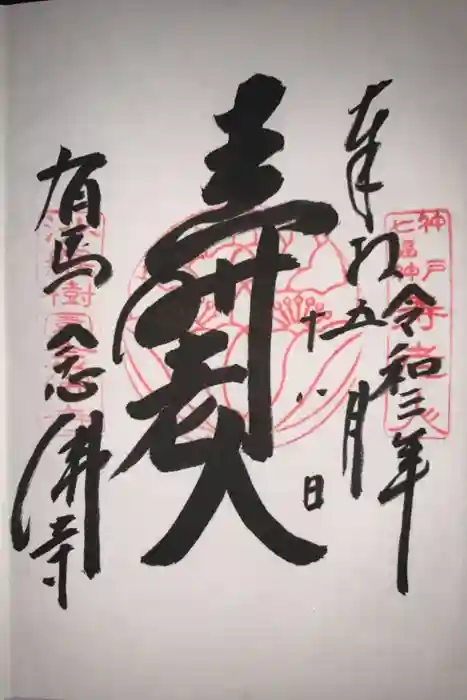 奉拝
令和三年
五月
十八日
壽老人
有馬 念佛寺
神戸
七福神